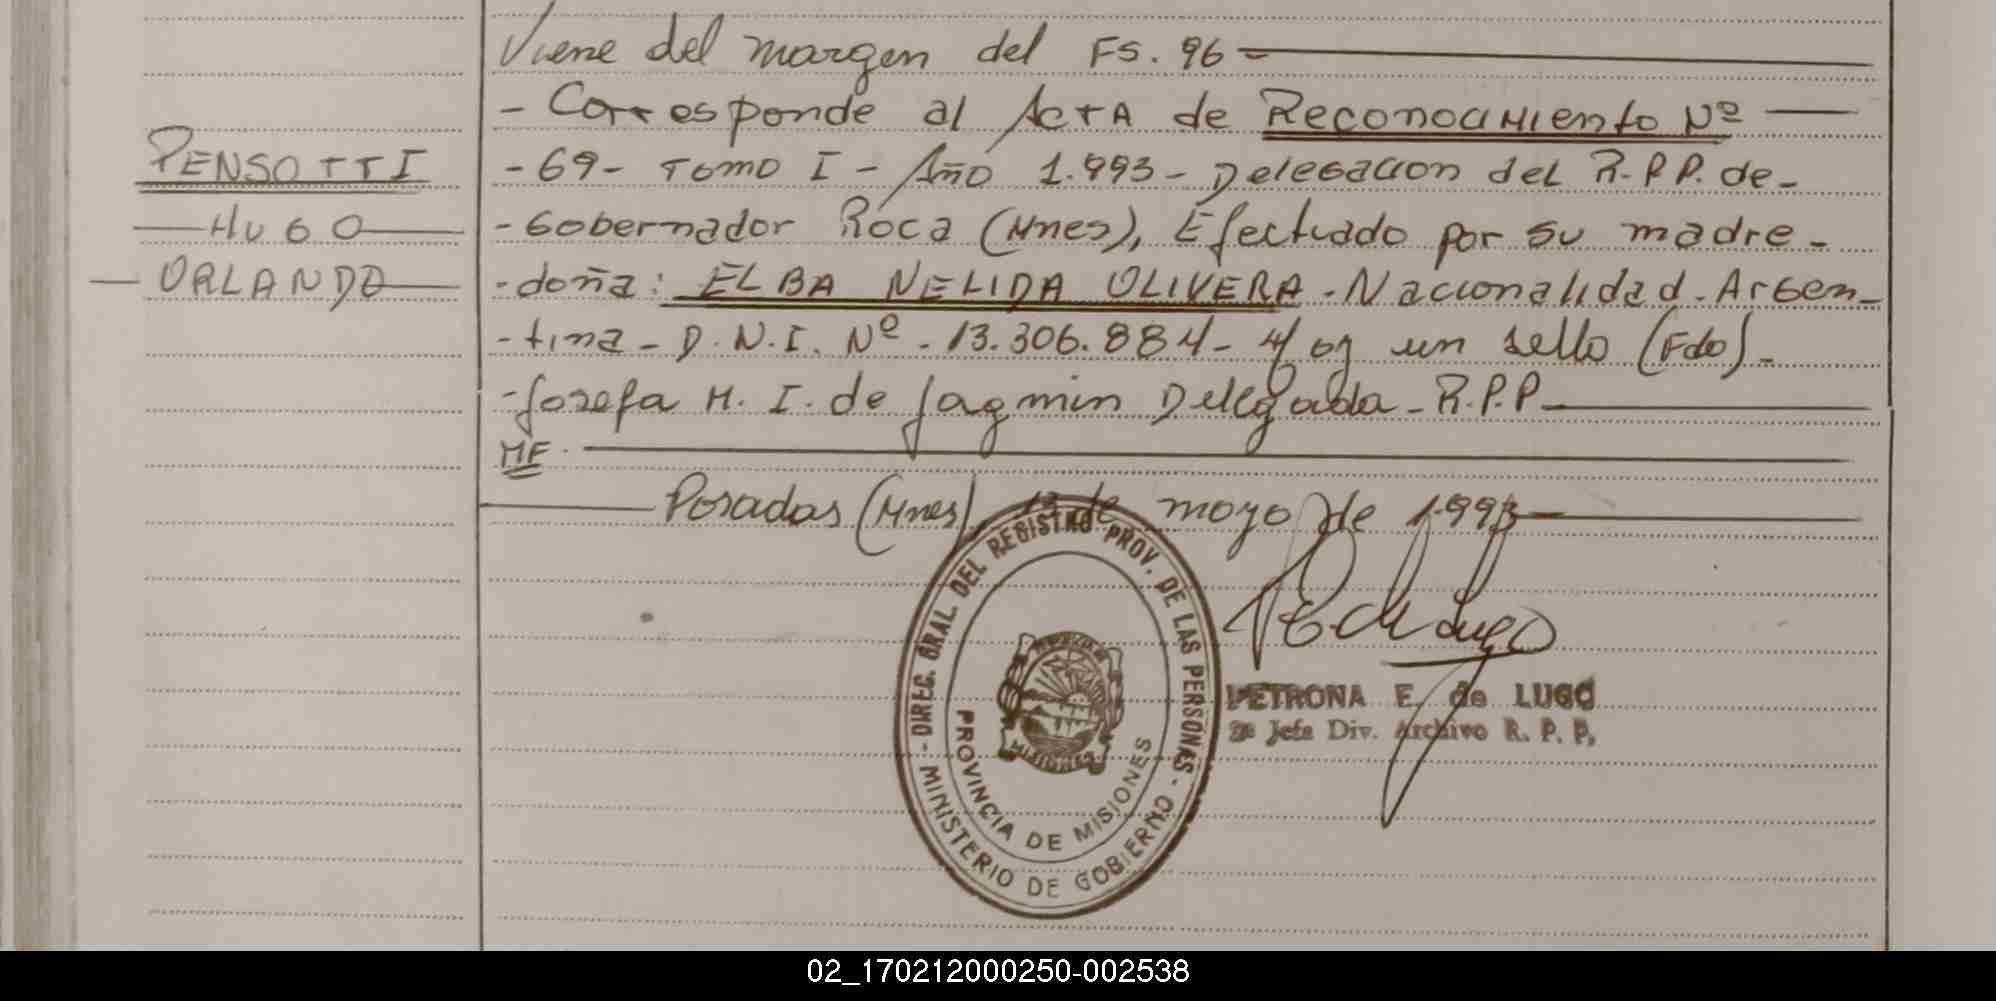 Viene del margen del FS. 96
- Corresponde al Acta de Reconocimiento Nº
PENSOTTI
- 69 - Tomo I - Año 1.993 - Delegacion del R.P.P. de -
HUGO
- Gobernador Roca (Mnes), Efectuado por su madre -
ORLANDO
- doña: ELBA NELIDA OLIVERA - Nacionalidad - Argen-
- tina - D.N.I. Nº - 13.306.884 - un sello (Fdo) -
- Josefa M. I. de Jagmin Delegada - R.P.P.
MF
Posadas (Mnes), 13 de mayo de 1993
DIREC. GRAL. DEL REGISTRO PROV. DE LAS PERSONAS - MINISTERIO DE GOBIERNO -
PROVINCIA DE MISIONES
MISIONES
PETRONA E. de LUGO
2ª Jefa Div. Archivo R. P. P.
02_170212000250-002538